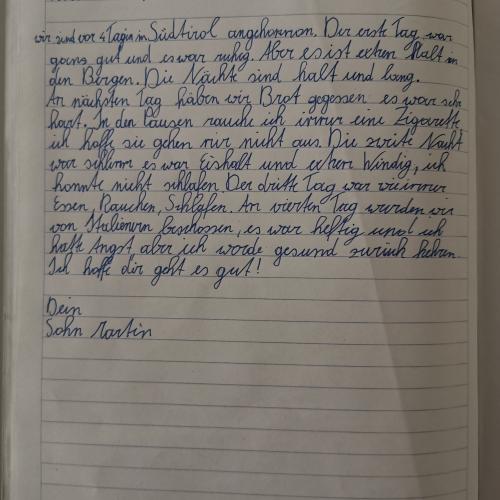 wir sind vor 4 Tagen in Südtirol angekommen. Der erste Tag war
ganz gut und es war ruhig. Aber es ist extrem kalt in
den Bergen. Die Nächte sind kalt und lang.
Am nächsten Tag haben wir Brot gegessen es war sehr
hart. In den Pausen rauche ich immer eine Zigarette
ich hoffe sie gehen mir nicht aus. Die zweite Nacht
war schlimm es war Eiskalt und extrem Windig, ich
konnte nicht schlafen. Der dritte Tag war wie immer
Essen, Rauchen, Schlafen. Am vierten Tag wurden wir
von Italienern beschossen, es war heftig und ich
hatte Angst, aber ich werde gesund zurück kehren.
Ich hoffe dir geht es gut!
Dein
Sohn Martin